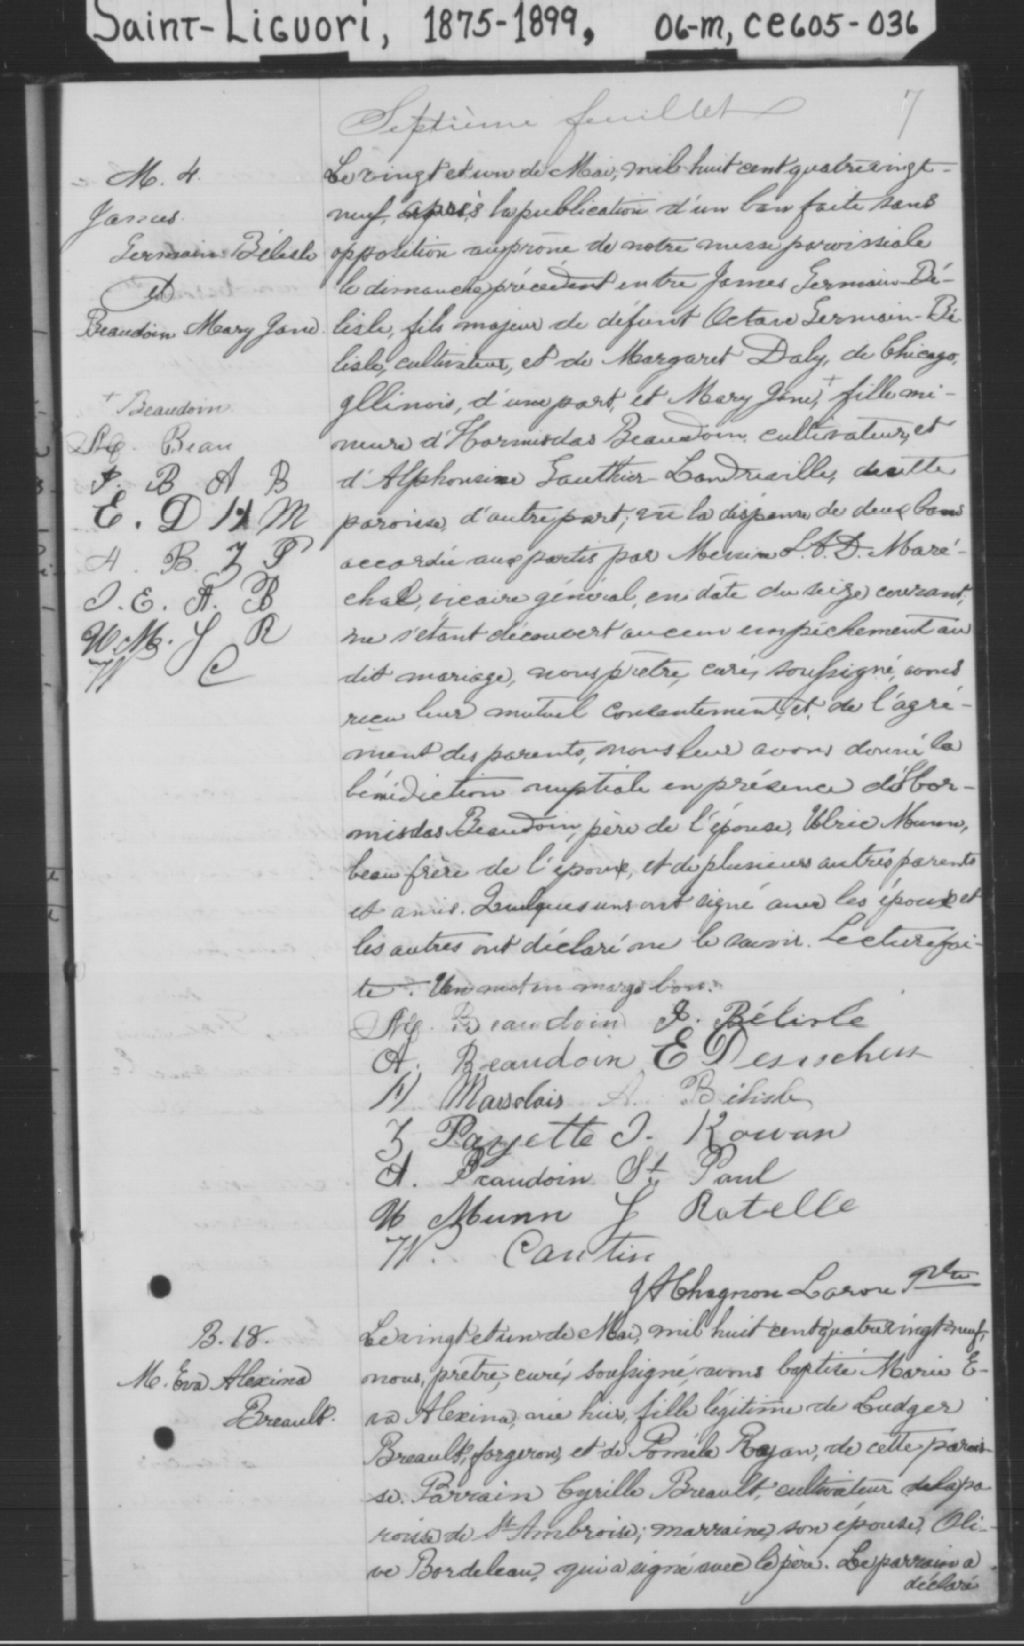 Saint-Liguori, 1875-1899, 06-m, ce605-036
Septième feuillet 7
M. 4.
James
Germain Bélisle
et
Beaudoin Mary Jane
+ Beaudoin
Beau
J. B A B
E. D H M
A. B. Z P
J. E. A. B
U M. J R
W C
Le vingt et un de Mai, mil huit cent quatrevingt-
neuf, après la publication d'un ban faite sans
opposition au prône de notre messe paroissiale
le dimanche précédent entre James Germain-Bé-
lisle, fils majeur de défunt Octave Germain-Bé
lisle, cultivateur, et de Margaret Daly, de Chicago,
Illinois, d'une part, et Mary Jane, + fille mi-
neure d'Hormisdas Beaudoin, cultivateur, et
d'Alphonsine Gauthier-Landreville, de cette
paroisse, d'autre part; vu la dispense de deux bans
accordée aux parties par Messire L.A.D. Maré-
chal, vicaire général, en date du seize courant,
ne s'étant découvert aucun empêchement au
dit mariage, nous, prêtre, curé, soussigné, avons
reçu leur mutuel consentement, et de l'agré-
ment des parents, nous leur avons donné la
bénédiction nuptiale en présence d'Hor-
misdas Beaudoin, père de l'épouse, Ulric Munn,
beau frère de l'époux, et de plusieurs autres parents
et amis. Quelques uns ont signé avec les époux et
les autres ont déclaré ne le savoir. Lecture fai-
te. Un mot en marge bon.
Beaudoin J. Bélisle
A. Beaudoin E
H Marsolais A. Bélisle
Z Payette J. Rowan
A. Beaudoin St Paul
U Munn J Ratelle
W. Cantin
Chagnon Larose Ptre
B. 18.
M. Eva Alexina
Breault.
Le vingt et un de Mai, mil huit cent quatrevingt neuf,
nous, prêtre, curé, soussigné avons baptisé Marie E-
va Alexina, née hier, fille légitime de Ludger
Breault, forgeron, et de Poméla Royan, de cette parois-
se. Parrain Cyrille Breault, cultivateur de la pa
roisse de St Ambroise; marraine, son épouse, Oli-
ve Bordeleau, qui a signé avec le père. Le parrain a
déclaré